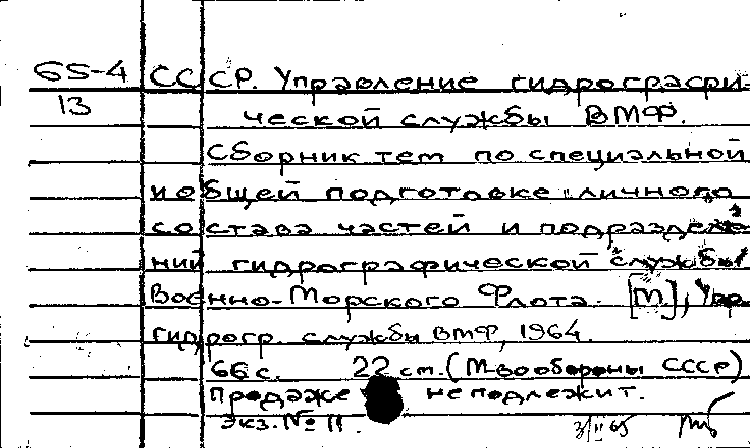 65-4 СССР. Управление гидрографи-
13 ческой службы ВМФ.
Сборник тем по специальной
и общей подготовке личного
состава частей и подразделе-
ний гидрографической службы
Военно-Морского Флота. [М], Упр.
гидрогр. службы ВМФ, 1964.
66 с. 22 см. (М-во обороны СССР)
Продаже не подлежит.
Экз. № 11. 3/II 65